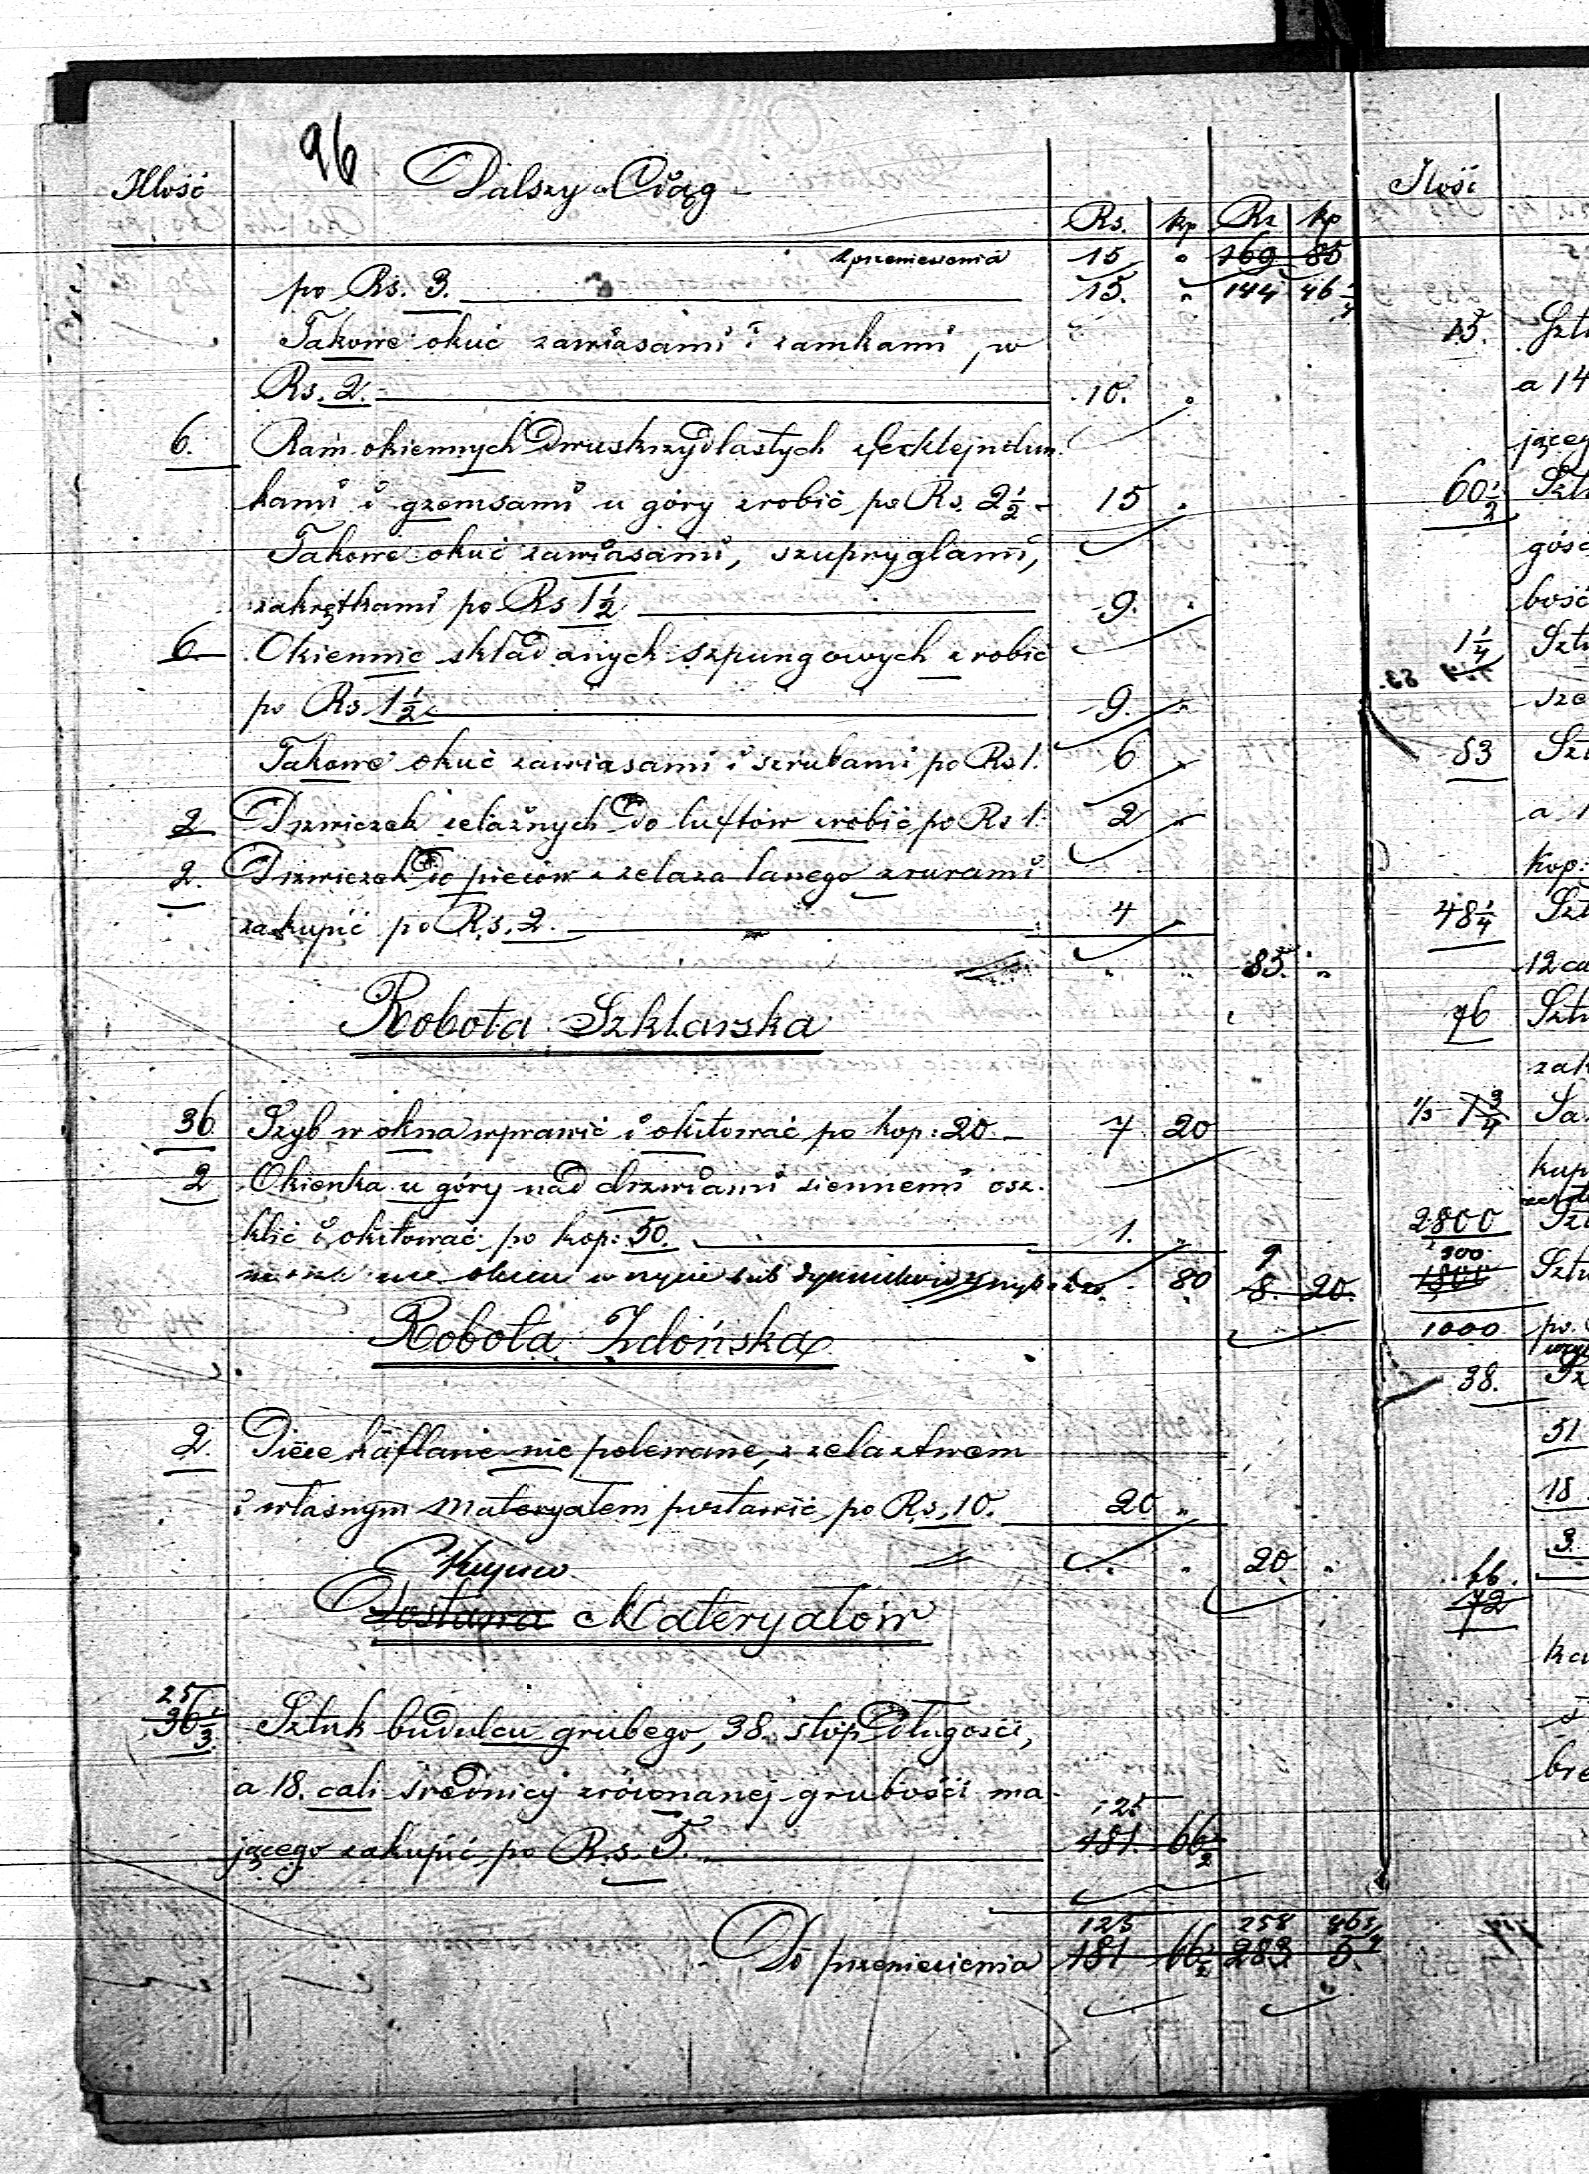 96
Illość Dalszy Ciąg
Rs. kp Rs kp
z przeniesienia 15 " 169 85
po Rs. 3. 15. " 144 46 1/4
Takowe okuć zawiasami i zamkami, w
Rs. 2. 10. "
6. Ram okiennych Dwuskrzydlastych z
kami i gzemsami u góry zrobić po Rs. 2 1/2 - 15 "
Takowe okuć zawiasami, szupryglami,
zakrętkami po Rs 1 1/2 9. "
6 Okiennic składanych szpungowych zrobić
po Rs 1 1/2 9. "
Takowe okuć zawiasami i szrubami po Rs 1. 6 "
2 Drzwiczek żelaznych Do luftów zrobić po Rs 1. 2 "
2. Drzwiczek Do pieców z żelaza lanego z rurami
zakupić po Rs. 2. 4 "
" " 85. "
Robota Szklarska
36 Szyb w okna wprawić i okitować po kop: 20. - 7 20
2 Okienka u góry nad drzwiami siennemi osz-
klić i okitować po kop: 50. 1. "
80 9
8. 20.
Robota Zdońska
2. Piece kaflane nie polewane, z żelaztwem
i własnym materyałem postawić po Rs. 10. 20 "
" " 20 "
Kupno
Dostawa Materyałów
25
36 1/3 Sztuk budulcu grubego, 38. stóp Długości,
a 18. cali średnicy zrównanej grubości ma-
125
jącego zakupić po Rs. 5. 181. 66 1/2
125 258 46 1/4
Do przeniesienia 181 66 1/2 283 5.
Ilość
15. Szt
a 14
jącej
60 1/2 Szt
gośc
bość
1 1/4 Szt
sze
53 Szt
a 1
kop:
48 1/4 Szt
12 ca
76 Szt
zak
7 3/4 Sa
kup
2800 Szt
1800 Szt
1000 po
38. Sz
51
18
3
66.
72